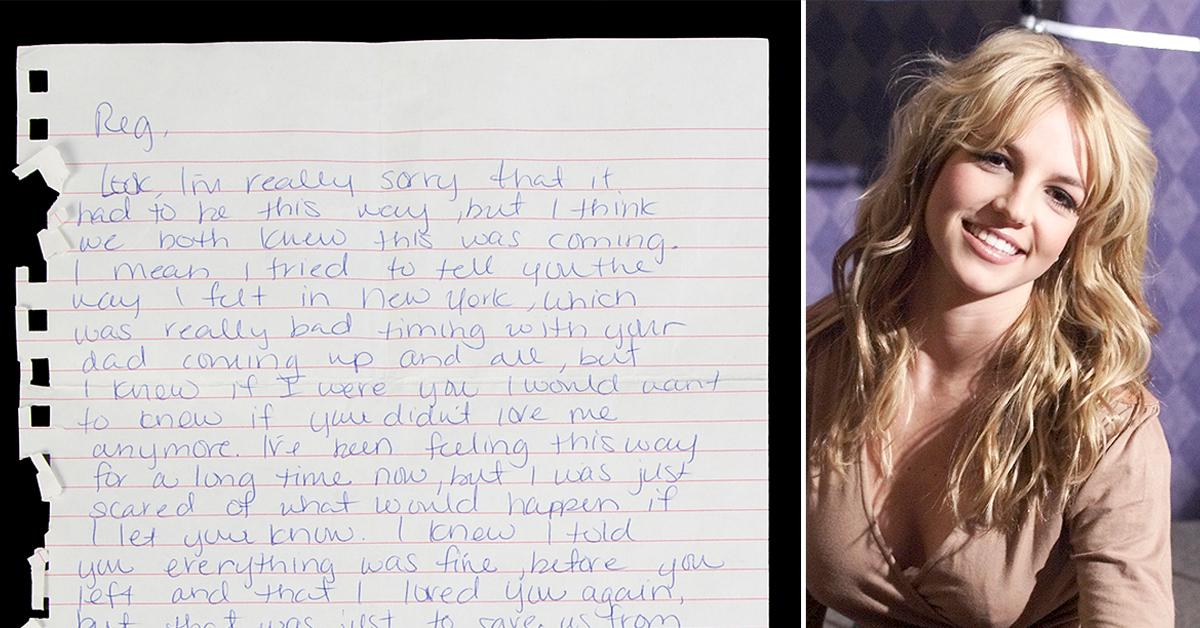 Reg,
Look, I'm really sorry that it
had to be this way, but I think
we both knew this was coming.
I mean I tried to tell you the
way I felt in New York, which
was really bad timing with your
dad coming up and all, but
I knew if I were you I would want
to know if you didn't love me
anymore. I've been feeling this way
for a long time now, but I was just
scared of what would happen if
I let you know. I know I told
you everything was fine, before you
left and that I loved you again,
but that was just to save us from